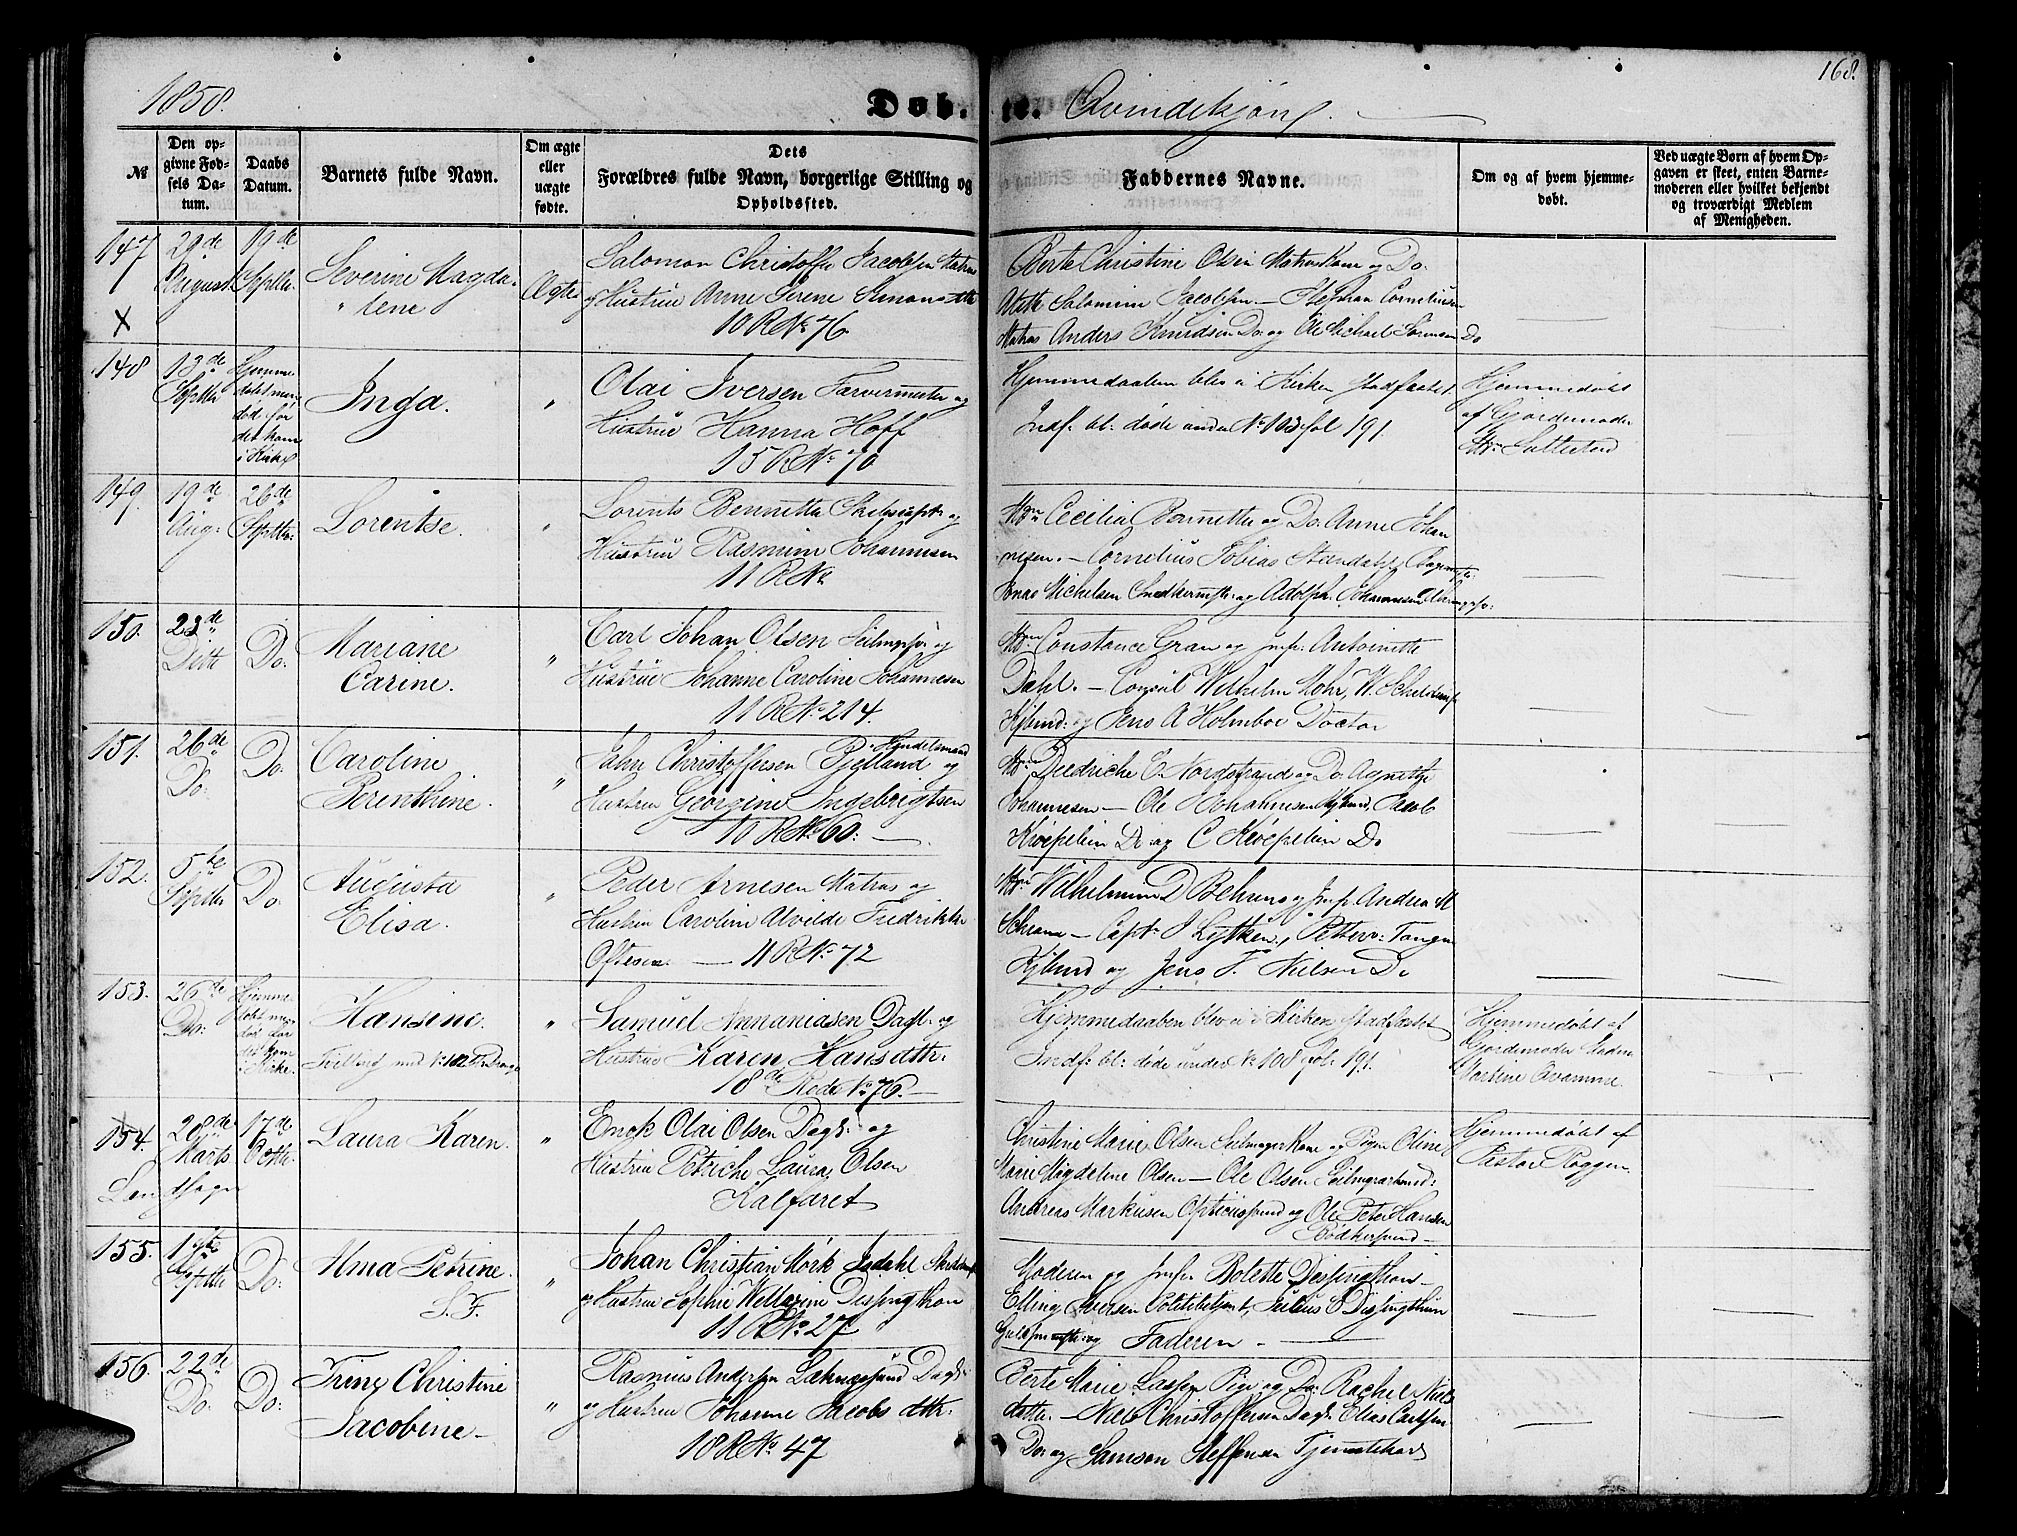 1858.
Døb. te. Qvindekjøn.
168.
№
Den opgivne Fødsels Datum.
Daabs Datum.
Barnets fulde Navn.
Om ægte eller uægte fødte.
Dets Forældres fulde Navn, borgerlige Stilling og Opholdssted.
Faddernes Navne.
Om og af hvem hjemmedøbt.
Ved uægte Børn af hvem Opgaven er skeet, enten Barnemoderen eller hvilket bekjendt og troværdigt Medlem af Menigheden.
147 X
29de August
19de Septbr
Severine Magda-
lene
Ægte
Salomon Christoffer Jacobsen Matros
og Hustrue Anne Serene Simonsdtr
10 R No 76
Berte Christine Olsen Matroskone og Do.
Alette Salomine Jacobsen. Stephan Cornelius
Matros Anders Knudsen Do og Ole Michael Sørensen Do
148
13de Septbr
Hjemmedøbt men død før det kom i Kirke
Inga.
"
Olai Iversen Farvermester og
Hustrue Hanna Hoff
15 R No 70
Hjemmedaaben blev ei i Kirken stadfæstet
Indf: bl: døde under No 103 fol 191.
Hjemmedøbt
af Gjordemoder
149.
19de Aug:
26de Septbr:
Lorentse.
"
Lorents Bennetter og
Hustrue Rasmine Johannesen
11 R No
Cecilia Bennetter og Do. Anne Johan
nesen. Cornelius Tobias Steendahl,
Jonas Michelsen Snedkermstr: og Adolph Johannesen
150.
23de Ditto
Do:
Mariane
Carine.
"
Carl Johan Olsen og
Hustrue Johanne Caroline Johannesen
11 R No 214.
Constance Gran og Jmfr: Antoinette
Dahl. Consul Wilhelm Mohr, W.
Kjbmd: og Jens A Holmboe Doctor
151.
26de Do:
Do:
Caroline
Berenthine.
"
John Christoffersen Pjelland Handelsmand og
Hustrue Georgine Ingebrigtsen
10 R No 60:
Diedriche E. Nordstrand og Do Agnethe
Johannesen — Ole Johannesen Kjbmd, Jacob
Do og C Do
152.
5te Septbr
Do:
Augusta
Elisa.
"
Peder Arnesen Matros og
Hustrue Caroline Alvilde Fredrikke
Oftesen. 11 R No 72
Wilhelmine D Behrens og Jmfr Andrea M
Schram — Capt: J Lytken, Petter Tangen
Kjbmd og Jens F. Nielsen Do
153.
26de Do:
Hjemmedøbt men død før det kom i Kirke.
Hansine.
Tvilling med No 102
"
Samuel Annaniasen Dagl. og
Hustrue Karen Hansdtr:
18de Rode No 76.
Hjemmedaaben blev ei i Kirken stadfæstet
Indf: bl: døde under No 108 fol: 191.
Hjemmedøbt af
Gjordemoder Madm
Martine Qvamme.
154.
28de Marts
17de Octbr:
Laura Karen.
"
Enok Olai Olsen Dagl: og
Hustrue Petriche Laura Olsen
Kalfaret
Christine Marie Olsen Seilmagerkone og Pigen Oline
Marie Magdalene Olsen — Ole Olsen
Andreas Markusen og Ole Peter Hansen
Bødkersvend
Hjemmedøbt af
Pastor Roggen
155.
17de Septbr
Do:
Alma Petrine.
S. F.
"
Johan Christian Mørk Indahl
og Hustrue Sophie Dessingthon
11 R No 27
Moderen og Jmfr Bolette Dessingthon
Elling Iversen Politibetjent, Julius E Dessingthun
Guldsmedmstr: og Faderen.
156.
22de Do:
Do:
Trine Christine
Jacobine
"
Rasmus Andersen Dagl:
og Hustrue Johanne Jacobs dtr:
18 R No 47
Berte Marie Lassen Pige og Do Rachel Niels
datter. Niels Christoffersen Dagl: Elias Carlsen
Do: og Samson Steffensen Tjenestekarl